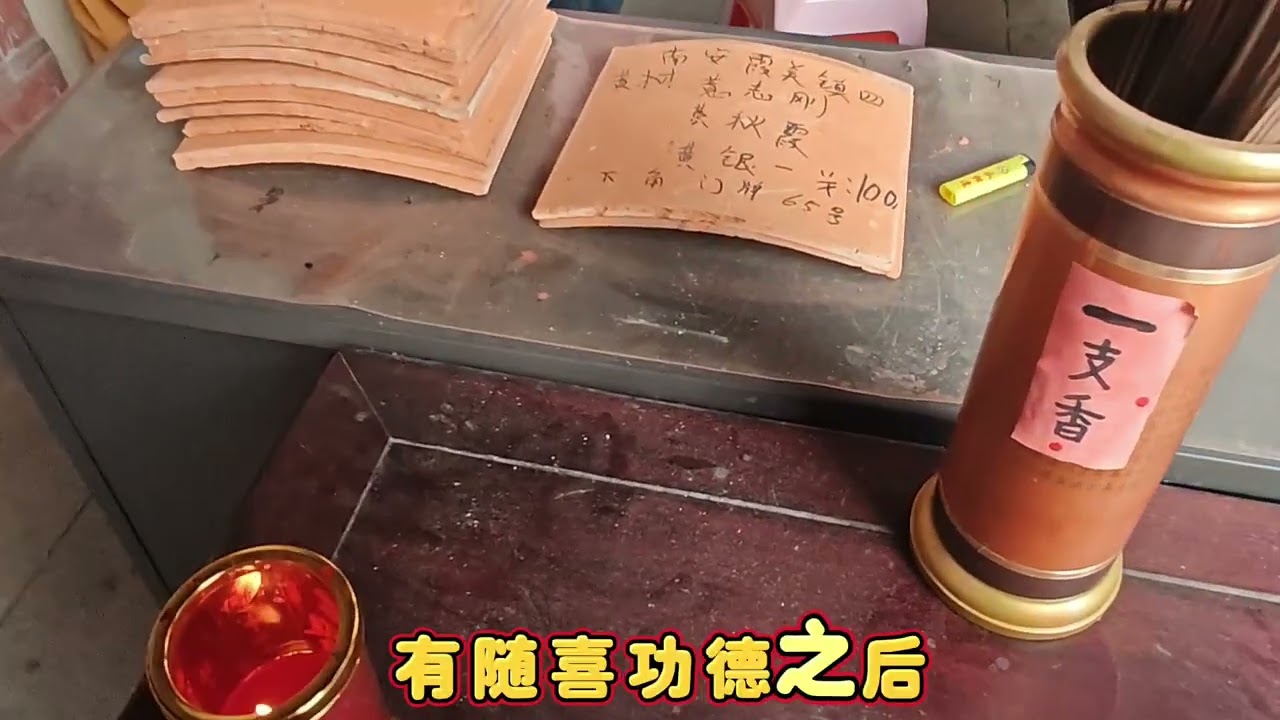 南安霞美镇四
黄村 黄志刚
黄秋霞
黄银一 羊:100.
下角门牌65号
一支香
有随喜功德之后